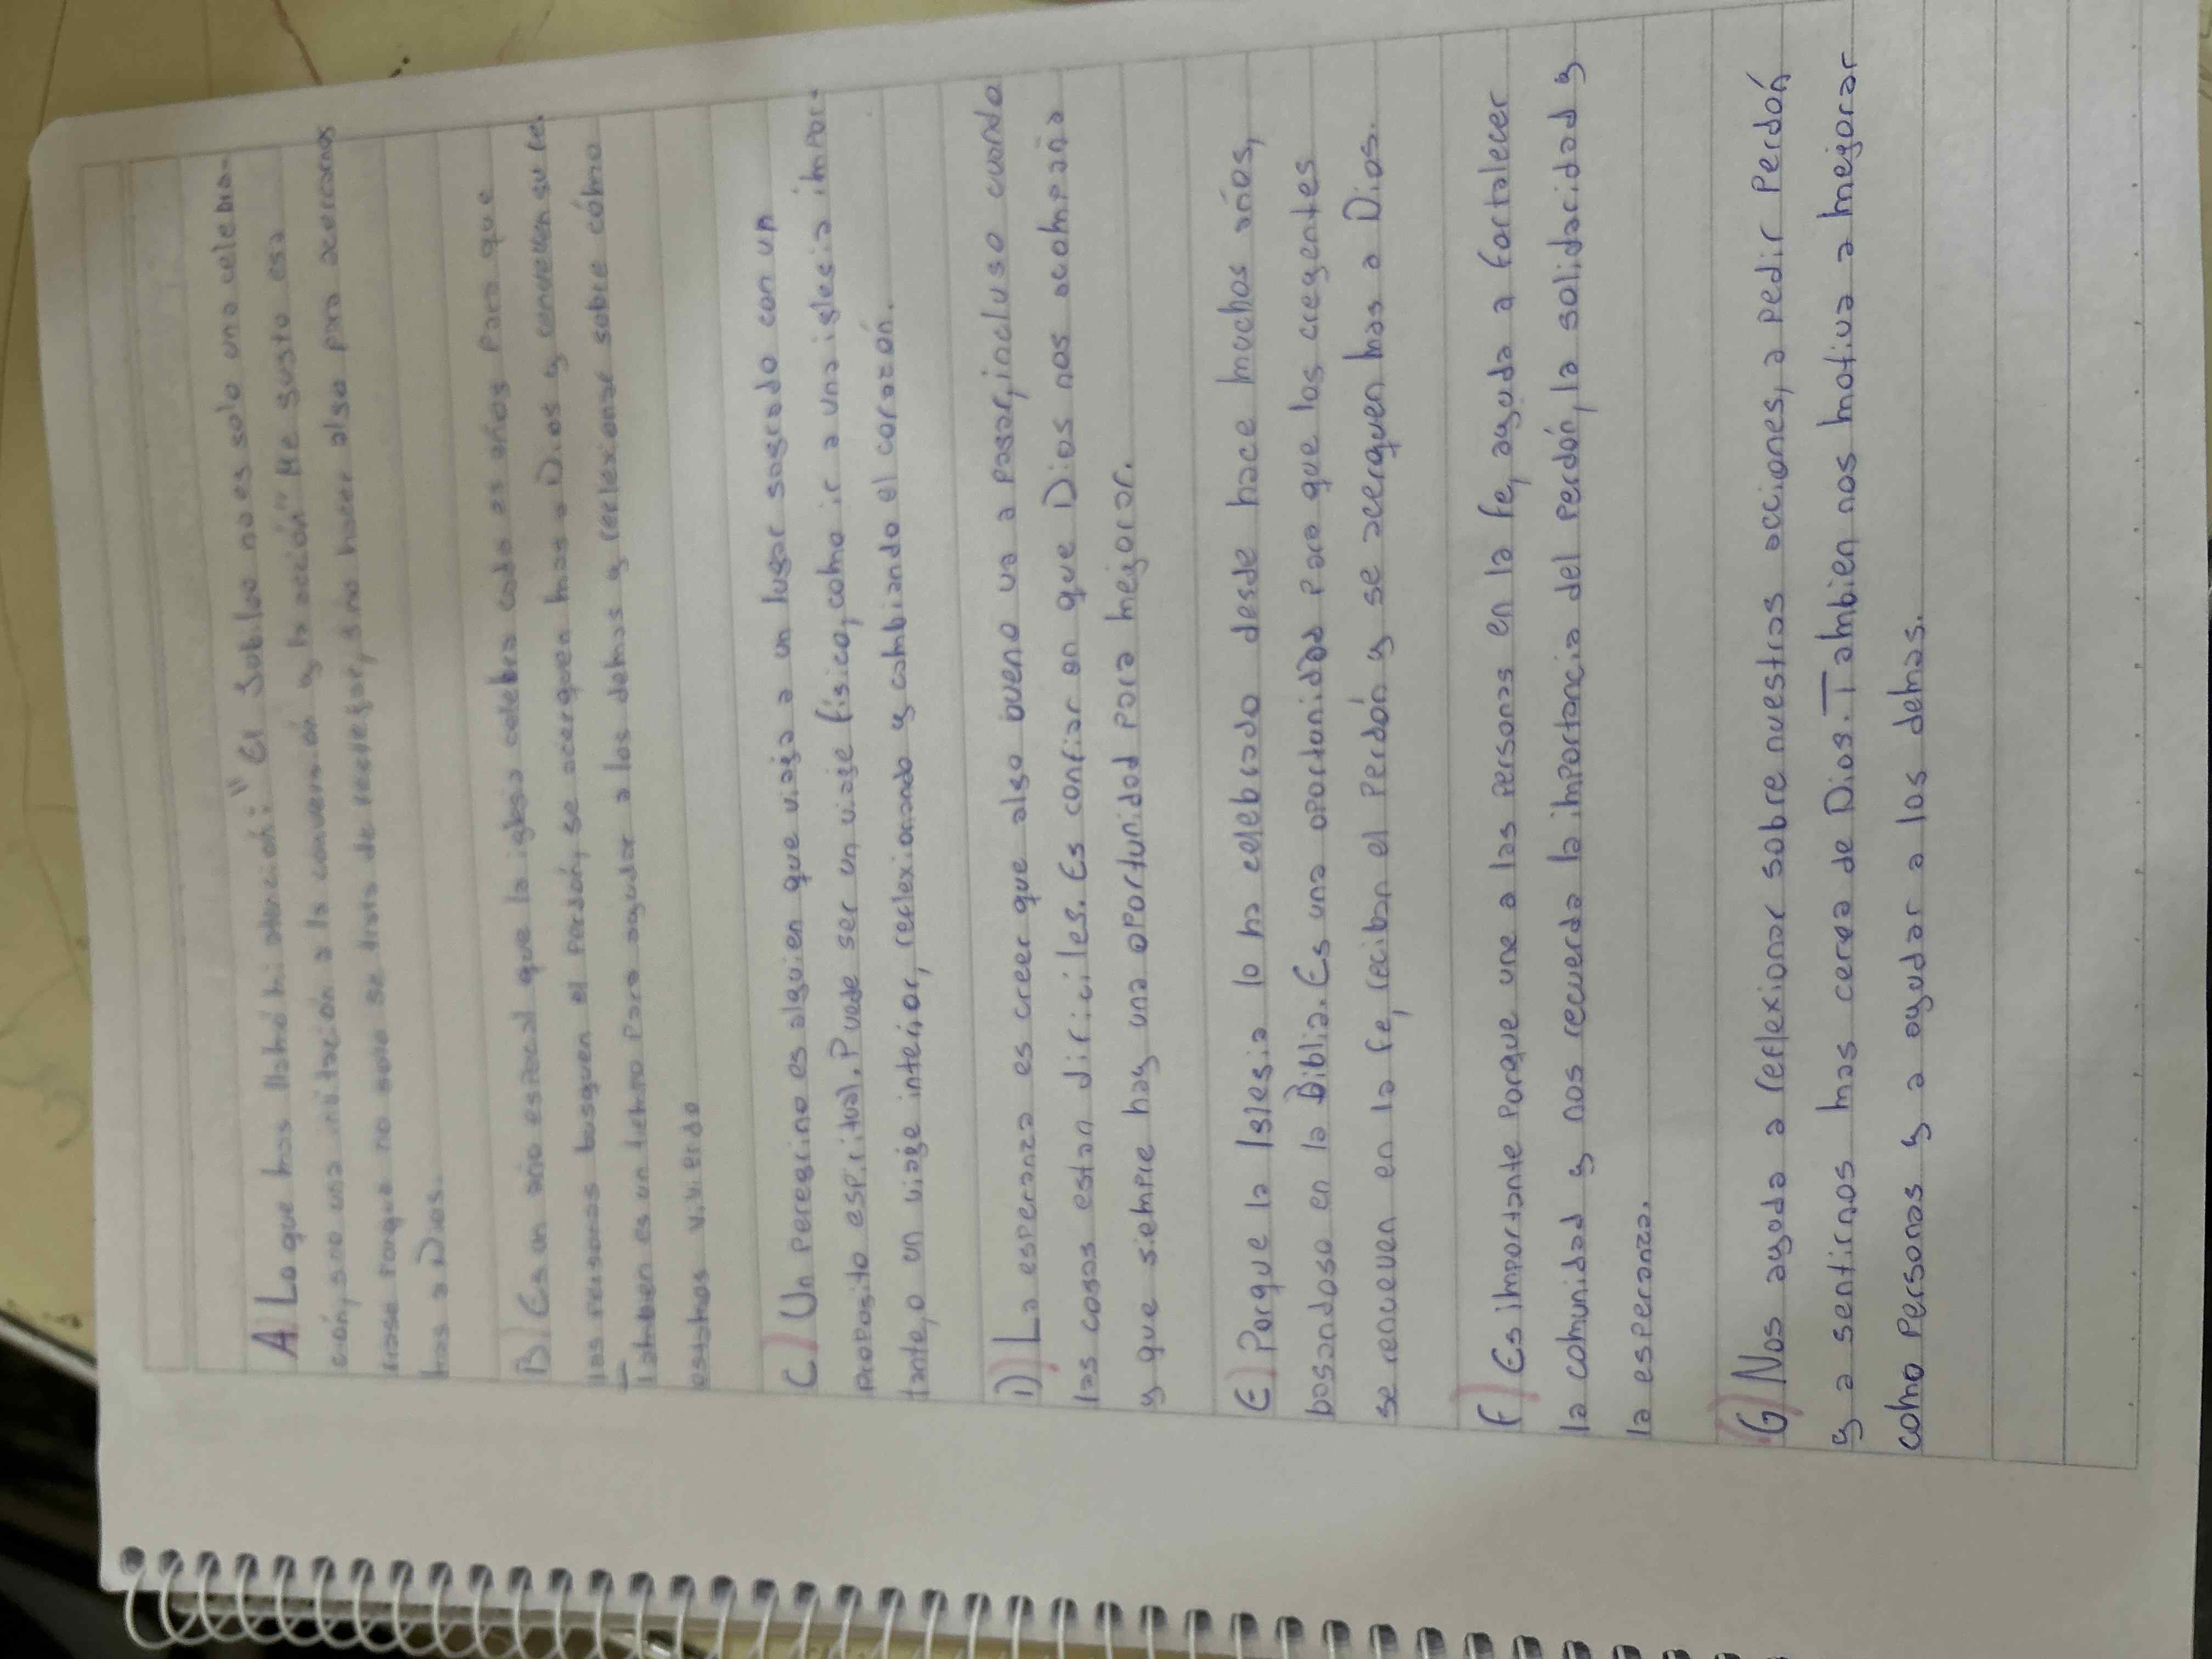 A) Lo que mas llamó mi atención: "El Jubileo no es solo una celebra-
ción, sino una invitación a la conversión y la acción" Me gusto esa
frase porque no solo se trata de festejar, sino hacer algo para acercarnos
mas a Dios.
B) Es un año especial que la iglesia celebra cada 25 años para que
las personas busquen el perdón, se acerquen mas a Dios y renueven su fe.
Tambien es un tiempo para ayudar a los demas y reflexionar sobre cómo
estamos viviendo
C) Un peregrino es alguien que viaja a un lugar sagrado con un
proposito espiritual. Puede ser un viaje fisico, como ir a una iglesia impor-
tante, o un viaje interior, reflexionando y cambiando el corazón.
D) La esperanza es creer que algo bueno va a pasar, incluso cuando
las cosas estan dificiles. Es confiar en que Dios nos acompaña
y que siempre hay una oportunidad para mejorar.
E) Porque la Iglesia lo ha celebrado desde hace muchos años,
basandose en la Biblia. Es una oportunidad para que los creyentes
se renueven en la fe, reciban el perdón y se acerquen mas a Dios.
F) Es importante porque une a las personas en la fe, ayuda a fortalecer
la comunidad y nos recuerda la importancia del perdón, la solidaridad y
la esperanza.
G) Nos ayuda a reflexionar sobre nuestras acciones, a pedir perdón
y a sentirnos mas cerca de Dios. Tambien nos motiva a mejorar
como personas y a ayudar a los demas.